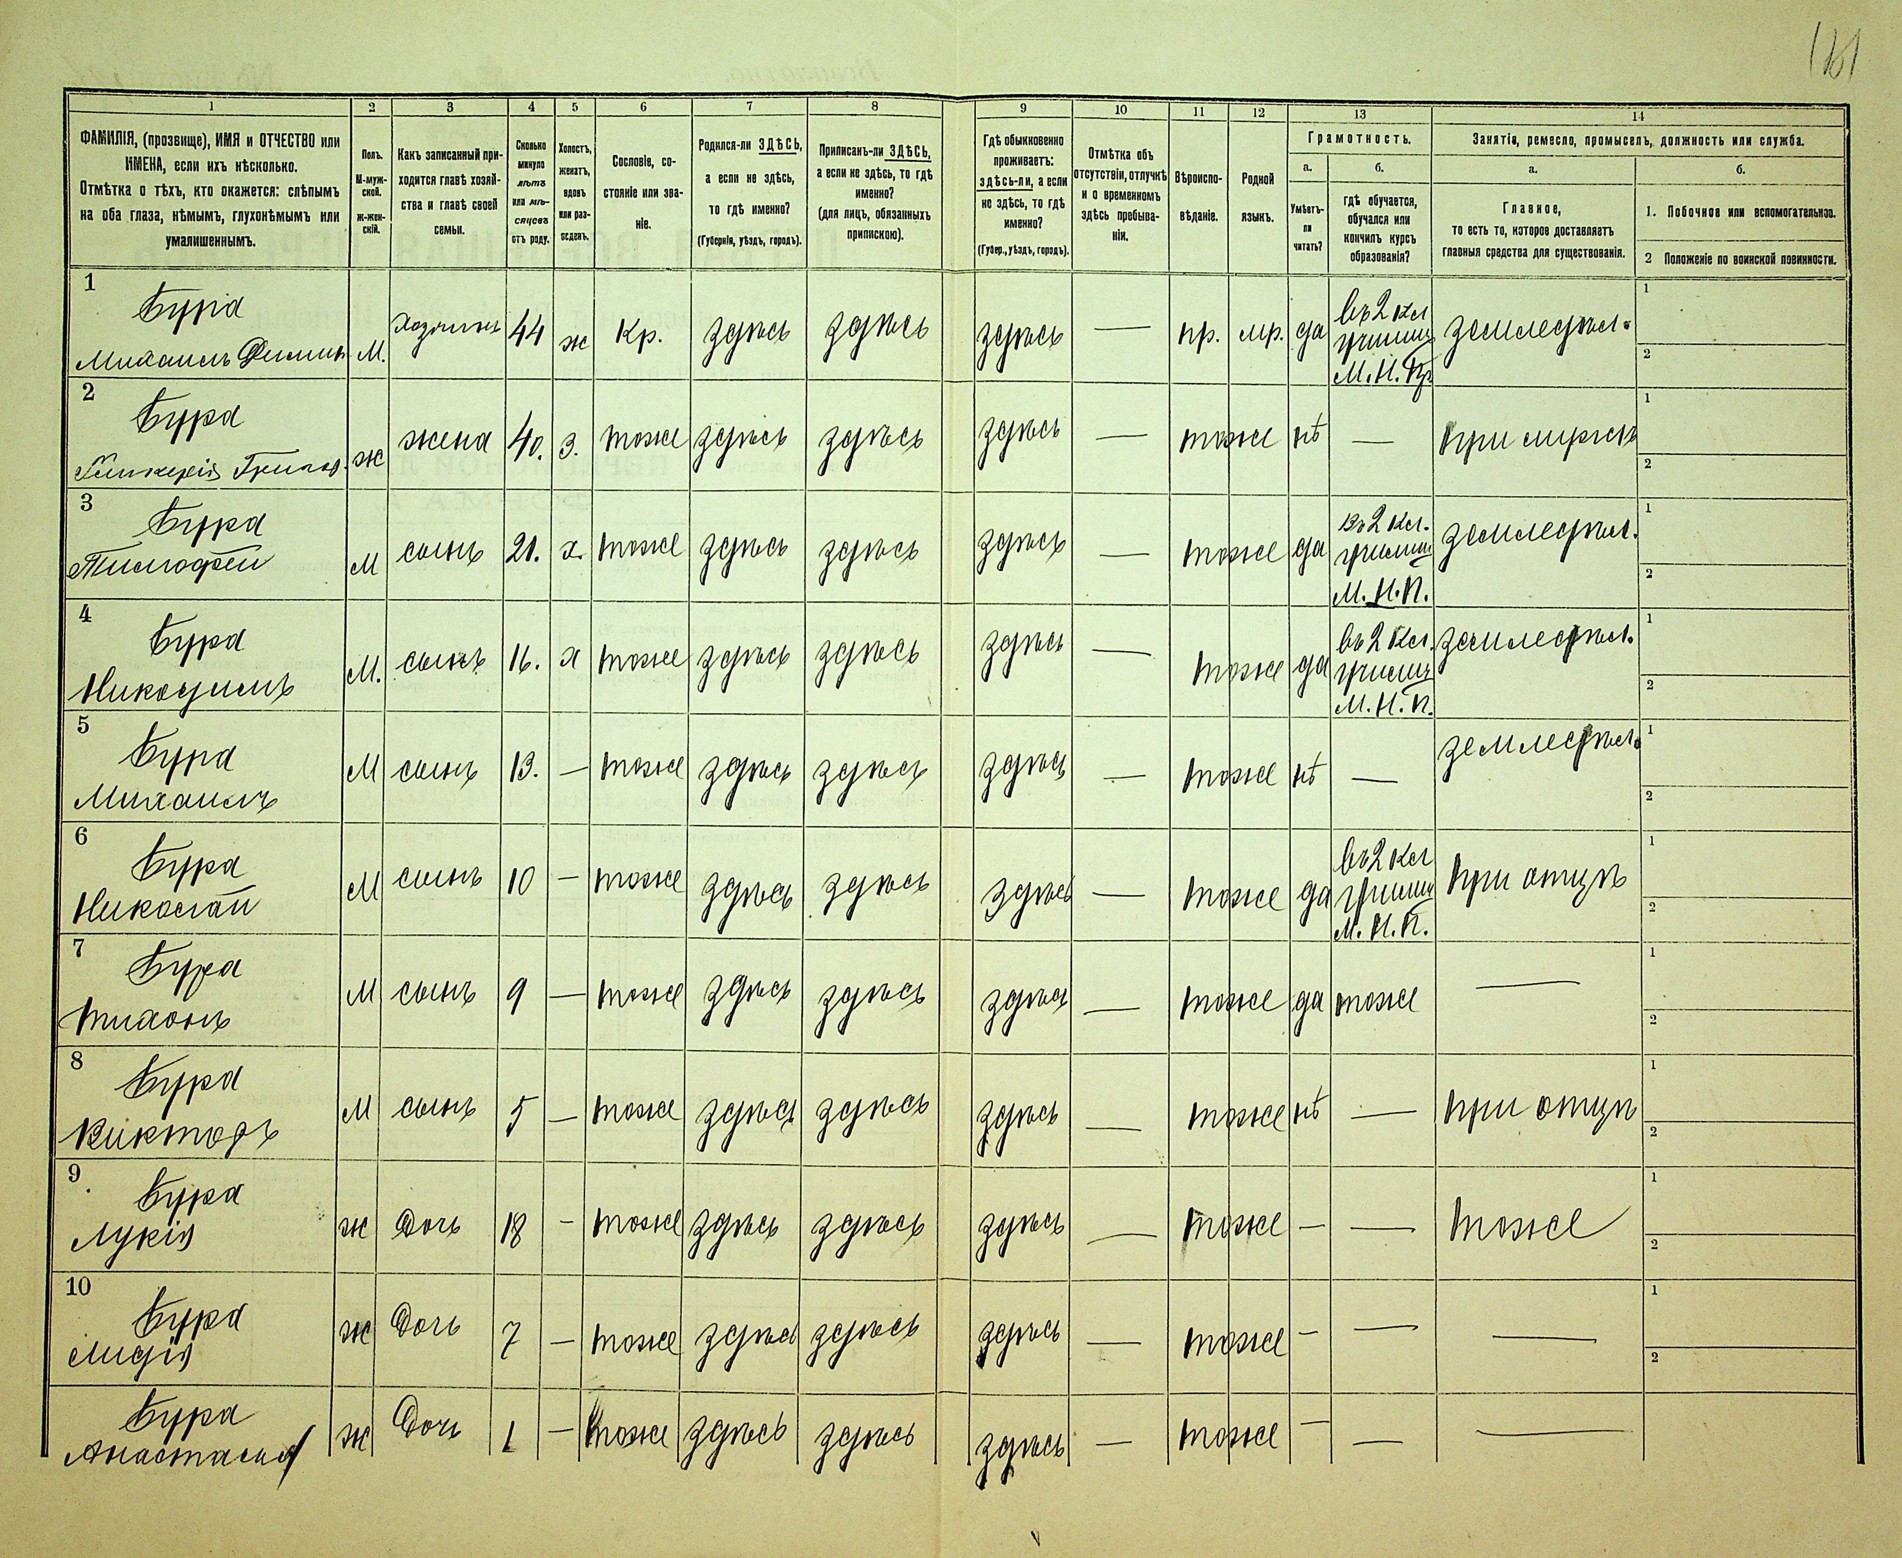 161
1 2 3 4 5 6 7 8 9 10 11 12 13 14
ФАМИЛІЯ, (прозвище), ИМЯ и ОТЧЕСТВО или
ИМЕНА, если ихъ нѣсколько.
Отмѣтка о тѣхъ, кто окажется: слѣпымъ
на оба глаза, нѣмымъ, глухонѣмымъ или
умалишеннымъ.
Полъ.
М-муж-
ской.
ж-жен-
скій.
Какъ записанный при-
ходится главѣ хозяй-
ства и главѣ своей
семьи.
Сколько
минуло
лѣтъ
или мѣ-
сяцевъ
отъ роду.
Холостъ,
женатъ,
вдовъ
или раз-
веденъ.
Сословіе, со-
стояніе или зва-
ніе.
Родился-ли ЗДѢСЬ,
а если не здѣсь,
то гдѣ именно?
(Губернія, уѣздъ, городъ).
Приписанъ-ли ЗДѢСЬ,
а если не здѣсь, то гдѣ
именно?
(для лицъ, обязанныхъ
припискою).
Гдѣ обыкновенно
проживаетъ:
здѣсь-ли, а если
не здѣсь, то гдѣ
именно?
(Губер., уѣздъ, городъ).
Отмѣтка объ
отсутствіи, отлучкѣ
и о временномъ
здѣсь пребыва-
ніи.
Вѣроиспо-
вѣданіе.
Родной
языкъ.
Грамотность.
а. б.
Умѣетъ-
ли
читать?
гдѣ обучается,
обучался или
кончилъ курсъ
образованія?
Занятія, ремесло, промыселъ, должность или служба.
а. б.
Главное,
то есть то, которое доставляетъ
главныя средства для существованія.
1. Побочное или вспомогательное.
2 Положеніе по воинской повинности.
1
Бура
Михаилъ М. Хозяинъ 44 ж Кр. здѣсь здѣсь здѣсь — пр. мр. да въ 2 кл училищ М. Н. Пр земледѣл. 1 2
2
Бура
ж жена 40. З. тоже здѣсь здѣсь здѣсь — тоже нѣ — при мужѣ 1 2
3
Бура
Тимофей М сынъ 21. х. тоже здѣсь здѣсь здѣсь — тоже да Въ 2 кл. училищ М. Н. П. земледѣл. 1 2
4
Бура
Никодимъ М. сынъ 16. х тоже здѣсь здѣсь здѣсь — тоже да въ 2 кл. училищ М. Н. П. земледѣл. 1 2
5
Бура
Михаилъ М сынъ 13. — тоже здѣсь здѣсь здѣсь — тоже нѣ — земледѣл. 1 2
6
Бура
Николай М сынъ 10 — тоже здѣсь здѣсь здѣсь — тоже да въ 2 кл училищ М. Н. П. при отцѣ 1 2
7
Бура
Тихонъ М сынъ 9 — тоже здѣсь здѣсь здѣсь — тоже да тоже — 1 2
8
Бура
Викторъ М сынъ 5 — тоже здѣсь здѣсь здѣсь — тоже нѣ — при отцѣ 1 2
9
Бура
Лукія ж Дочь 18 — тоже здѣсь здѣсь здѣсь — тоже — — тоже 1 2
10
Бура
Лидія ж Дочь 7 — тоже здѣсь здѣсь здѣсь — тоже — — — 1 2
Бура
Анастасія ж Дочь 1 — тоже здѣсь здѣсь здѣсь — тоже — — —